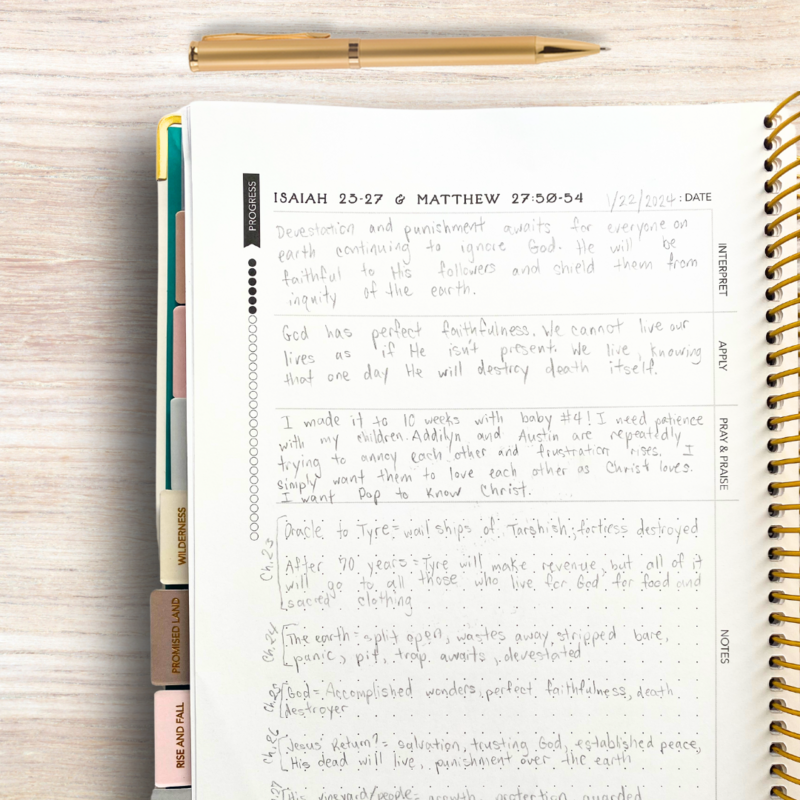 PROGRESS
ISAIAH 23-27 & MATTHEW 27:50-54 1/22/2024 : DATE
Devestation and punishment awaits for everyone on
earth continuing to ignore God. He will be
faithful to His followers and shield them from
inquity of the earth.
INTERPRET
God has perfect faithfulness. We cannot live our
lives as if He isn't present. We live, knowing
that one day He will destroy death itself.
APPLY
I made it to 10 weeks with baby #4! I need patience
with my children. Addilyn and Austin are repeatedly
trying to annoy each other and frustration rises. I
simply want them to love each other as Christ loves.
I want Pop to know Christ.
PRAY & PRAISE
Ch. 23
Oracle to Tyre = wail ships of Tarshish, fortress destroyed
After 70 years = Tyre will make revenue, but all of it
will go to all those who live for God for food and
sacred clothing
Ch. 24
The earth = split open, wastes away, stripped bare,
panic, pit, trap awaits, devestated
Ch. 25
God = Accomplished wonders, perfect faithfulness, death
destroyer
Ch. 26
Jesus' Return? = salvation, trusting God, established peace,
His dead will live, punishment over the earth
Ch. 27
This vineyard/people = growth, protection, guarded
NOTES
WILDERNESS
PROMISED LAND
RISE AND FALL